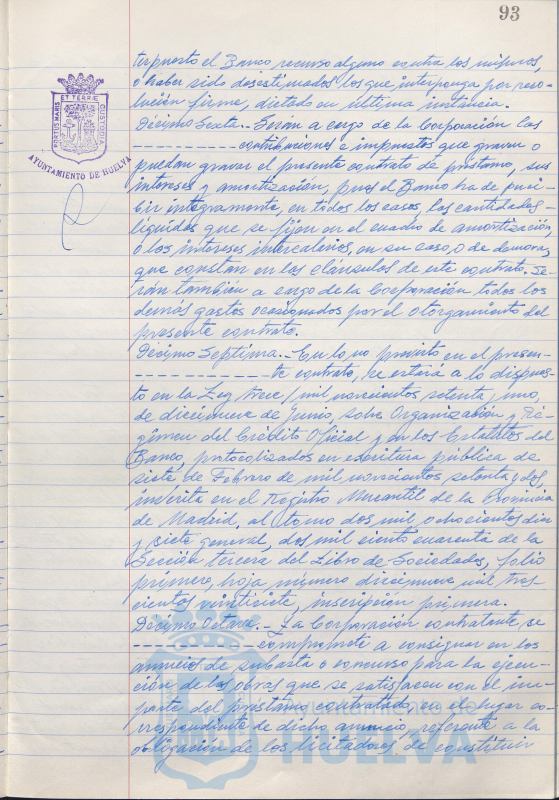 93
PORTUS MARIS ET TERRÆ CUSTODIA
AYUNTAMIENTO DE HUELVA
terpuesto el Banco, recurso alguno contra los mismos,
o haber sido desestimados los que interponga por reso-
lución firme, dictado en última instancia.
Décimo Sexta.- Serán a cargo de la Corporación las
contribuciones e impuestos que graven o
puedan gravar el presente contrato de préstamo, sus
intereses y amortización, pues el Banco ha de perci-
bir íntegramente, en todos los casos, las cantidades
líquidas que se fijan en el cuadro de amortización,
o los intereses intercalarios, en su caso, o de demora,
que constan en las cláusulas de este contrato. Se-
rán también a cargo de la Corporación todos los
demás gastos ocasionados por el otorgamiento del
presente contrato.
Décimo Septima.- En lo no previsto en el presen-
te contrato, se estará a lo dispues-
to en la Ley trece/mil novecientos setenta y uno,
de diecinueve de Junio, sobre Organización y Ré-
gimen del Crédito Oficial y en los Estatutos del
Banco, protocolizados en escritura pública de
siete de Febrero de mil novecientos setenta y dos
inscrita en el Registro Mercantil de la Provincia
de Madrid, al tomo dos mil ochocientos diez
y siete general, dos mil ciento cuarenta de la
Sección tercera del Libro de Sociedades, folio
primero, hoja número diecinueve mil tres
cientos veintisiete, inscripción primera.
Décimo Octava.- La Corporación contratante, se
compromete a consignar en los
anuncios de subasta o concurso para la ejecu-
ción de las obras que se satisfacen con el im-
porte del préstamo contratado, en el lugar co-
rrespondiente de dicho anuncio, referente a la
obligación de los licitadores de constituir
HUELVA